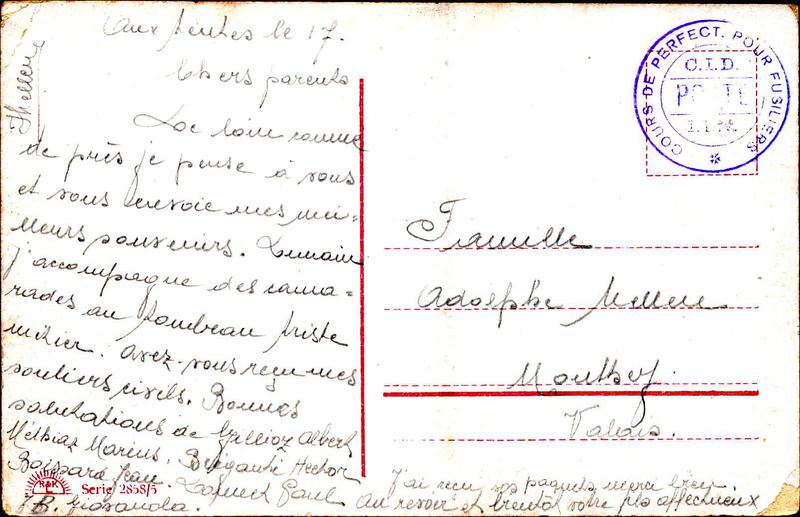 Aux tentes le 17.
Chers parents
De loin comme
de près je pense à vous
et vous envoie mes mei-
lleurs souvenirs. Demain
j'accompagne des cama-
rades au tombeau triste
métier. Avez-vous reçu mes
souliers civils. Bonnes
salutations de Gillioz Albert
Marius. Briganti Hector
Jean. Paul
R. Giovanola.
COURS DE PERFECT. POUR FUSILIERS
C.I.D.
POSTE
Famille
Adolphe
Monthey
Valais.
J'ai reçu vos paquets merci bien.
Au revoir et bientôt votre fils affectueux
R&K
L.
Serie 2858/5